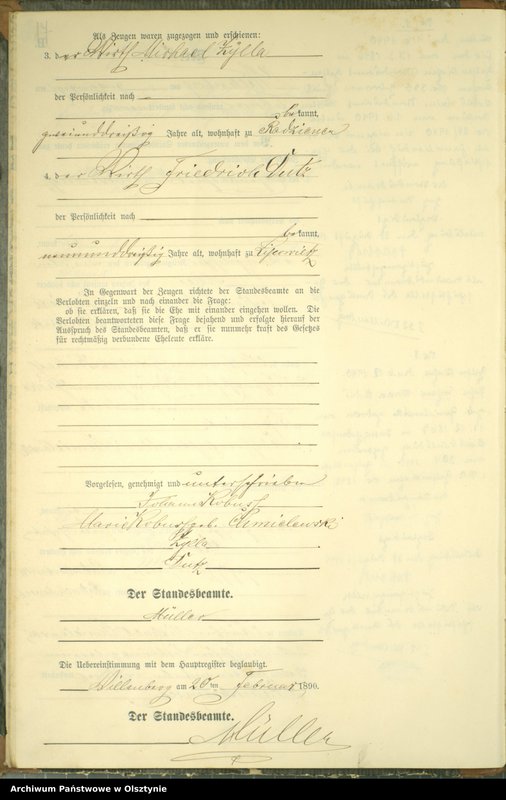 Als Zeugen waren zugezogen und erschienen:
3. der Wirth Michael Zylla
der Persönlichkeit nach
bekannt,
zweiunddreißig Jahre alt, wohnhaft zu Radzienen
4. der Wirth Friedrich Dutz
der Persönlichkeit nach
bekannt,
neununddreißig Jahre alt, wohnhaft zu Lipowietz
In Gegenwart der Zeugen richtete der Standesbeamte an die
Verlobten einzeln und nach einander die Frage:
ob sie erklären, daß sie die Ehe mit einander eingehen wollen. Die
Verlobten beantworteten diese Frage bejahend und erfolgte hierauf der
Ausspruch des Standesbeamten, daß er sie nunmehr kraft des Gesetzes
für rechtmäßig verbundene Eheleute erkläre.
Vorgelesen, genehmigt und unterschrieben
Johann Kobus
Marie Kobus geb. Chmielewski
Zylla
Dutz
Der Standesbeamte.
Müller
Die Uebereinstimmung mit dem Hauptregister beglaubigt.
Willenberg am ten Februar 1890.
Der Standesbeamte.
Müller
Archiwum Państwowe w Olsztynie